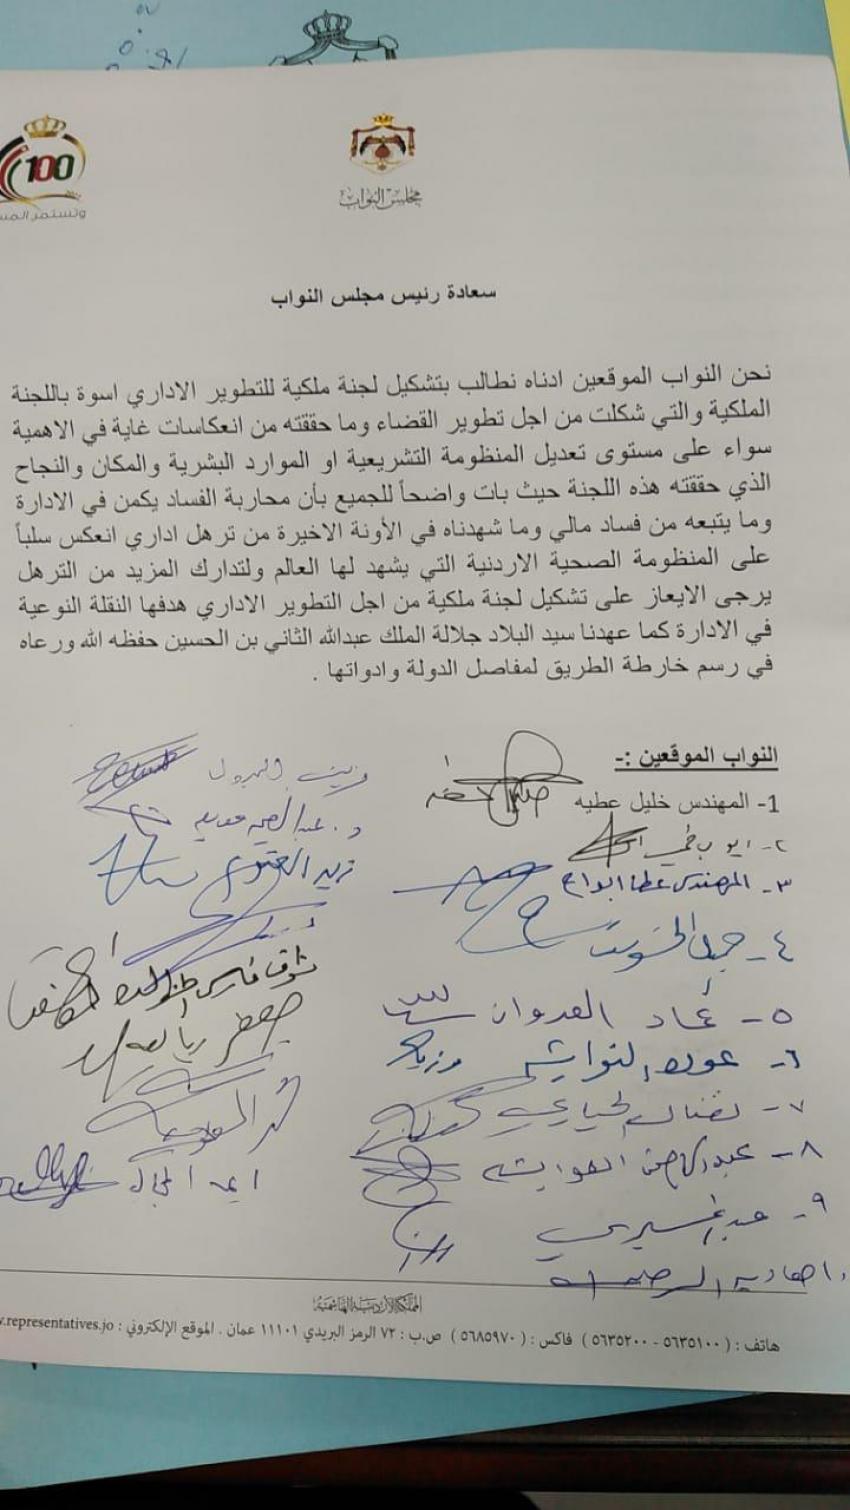 100
وتستمر
مجلس النواب
سعادة رئيس مجلس النواب
نحن النواب الموقعين ادناه نطالب بتشكيل لجنة ملكية للتطوير الاداري اسوة باللجنة
الملكية والتي شكلت من اجل تطوير القضاء وما حققته من انعكاسات غاية في الاهمية
سواء على مستوى تعديل المنظومة التشريعية او الموارد البشرية والمكان والنجاح
الذي حققته هذه اللجنة حيث بات واضحاً للجميع بأن محاربة الفساد يكمن في الادارة
وما يتبعه من فساد مالي وما شهدناه في الأونة الاخيرة من ترهل اداري انعكس سلباً
على المنظومة الصحية الاردنية التي يشهد لها العالم ولتدارك المزيد من الترهل
يرجى الايعاز على تشكيل لجنة ملكية من اجل التطوير الاداري هدفها النقلة النوعية
في الادارة كما عهدنا سيد البلاد جلالة الملك عبدالله الثاني بن الحسين حفظه الله ورعاه
في رسم خارطة الطريق لمفاصل الدولة وادواتها .
النواب الموقعين :-
1- المهندس خليل عطيه
٢- ايوب
٣- المهندس عطا ابداح
٤-
٥- عماد العدوان
٦-
٧- نضال الحياري
٨-
٩-
زينب البدول
زيد العتوم
جعفر ربابعه
المملكة الأردنية الهاشمية
هاتف : ( ٥٦٣٥١٠٠ - ٥٦٣٥٢٠٠ ) فاكس : ( ٥٦٨٥٩٧٠ ) ص.ب : ٧٢ الرمز البريدي ١١١٠١ عمان . الموقع الإلكتروني : w.representatives.jo